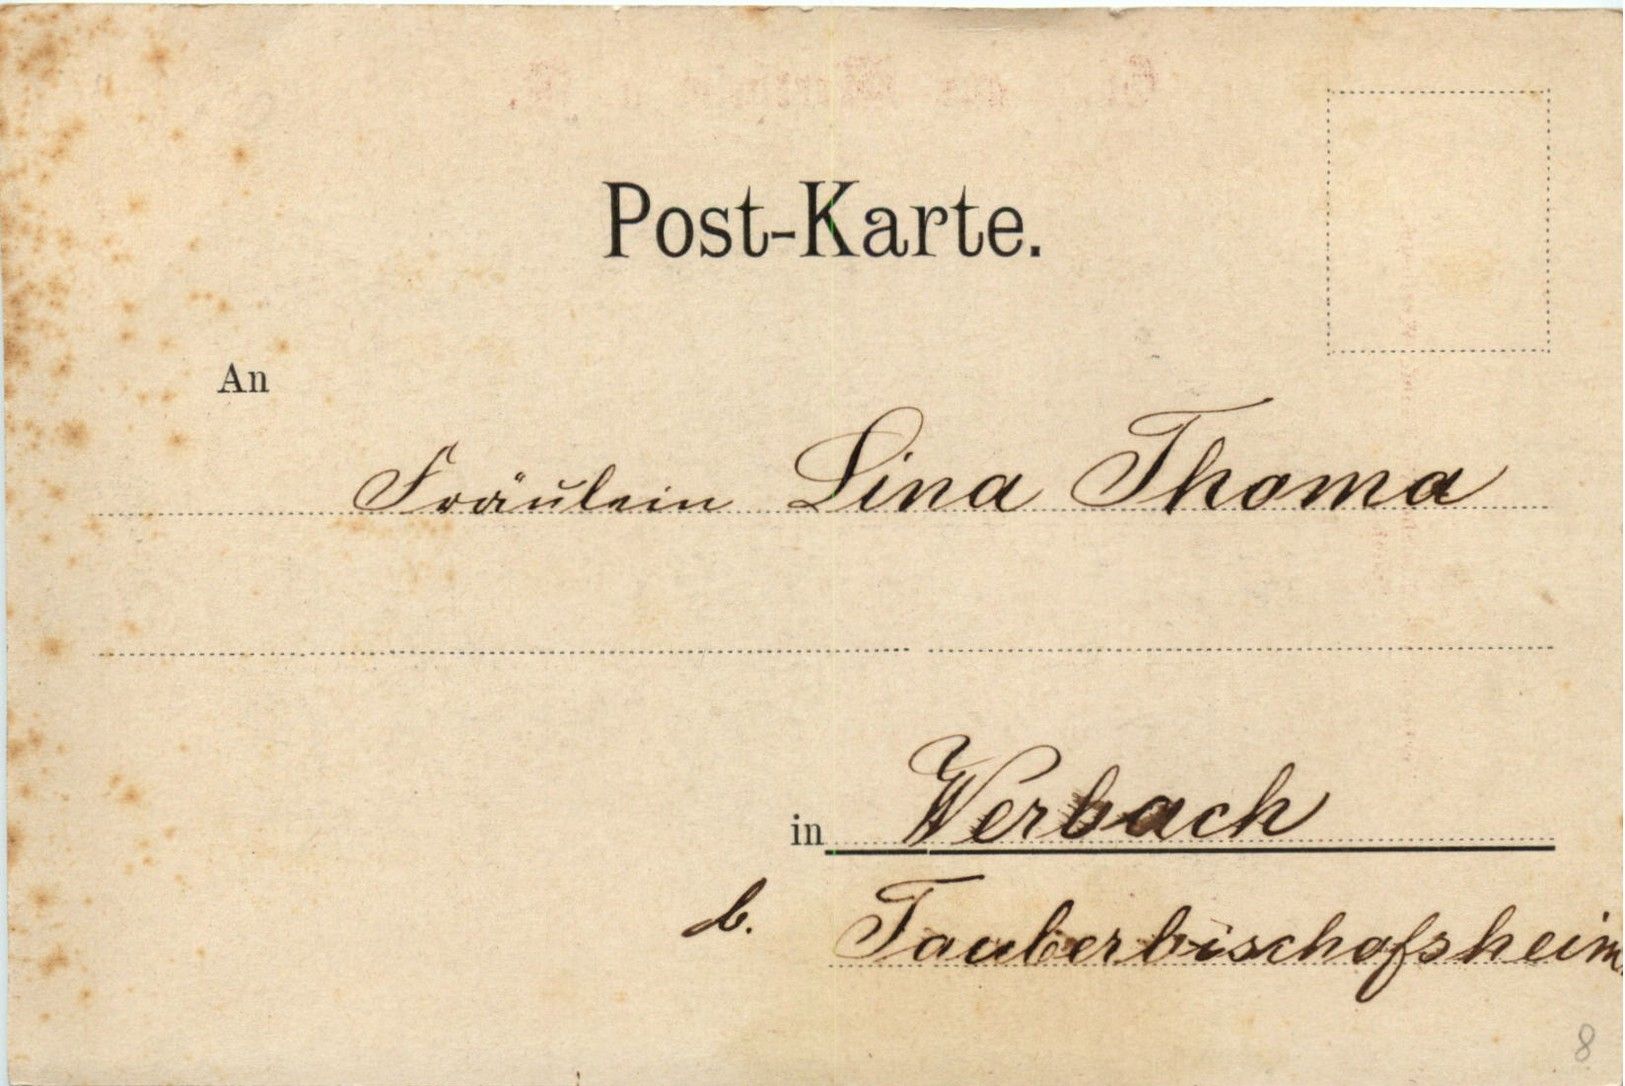 Post-Karte.
An
Fräulein Lina Thoma
in Werbach
b. Tauberbischofsheim
8